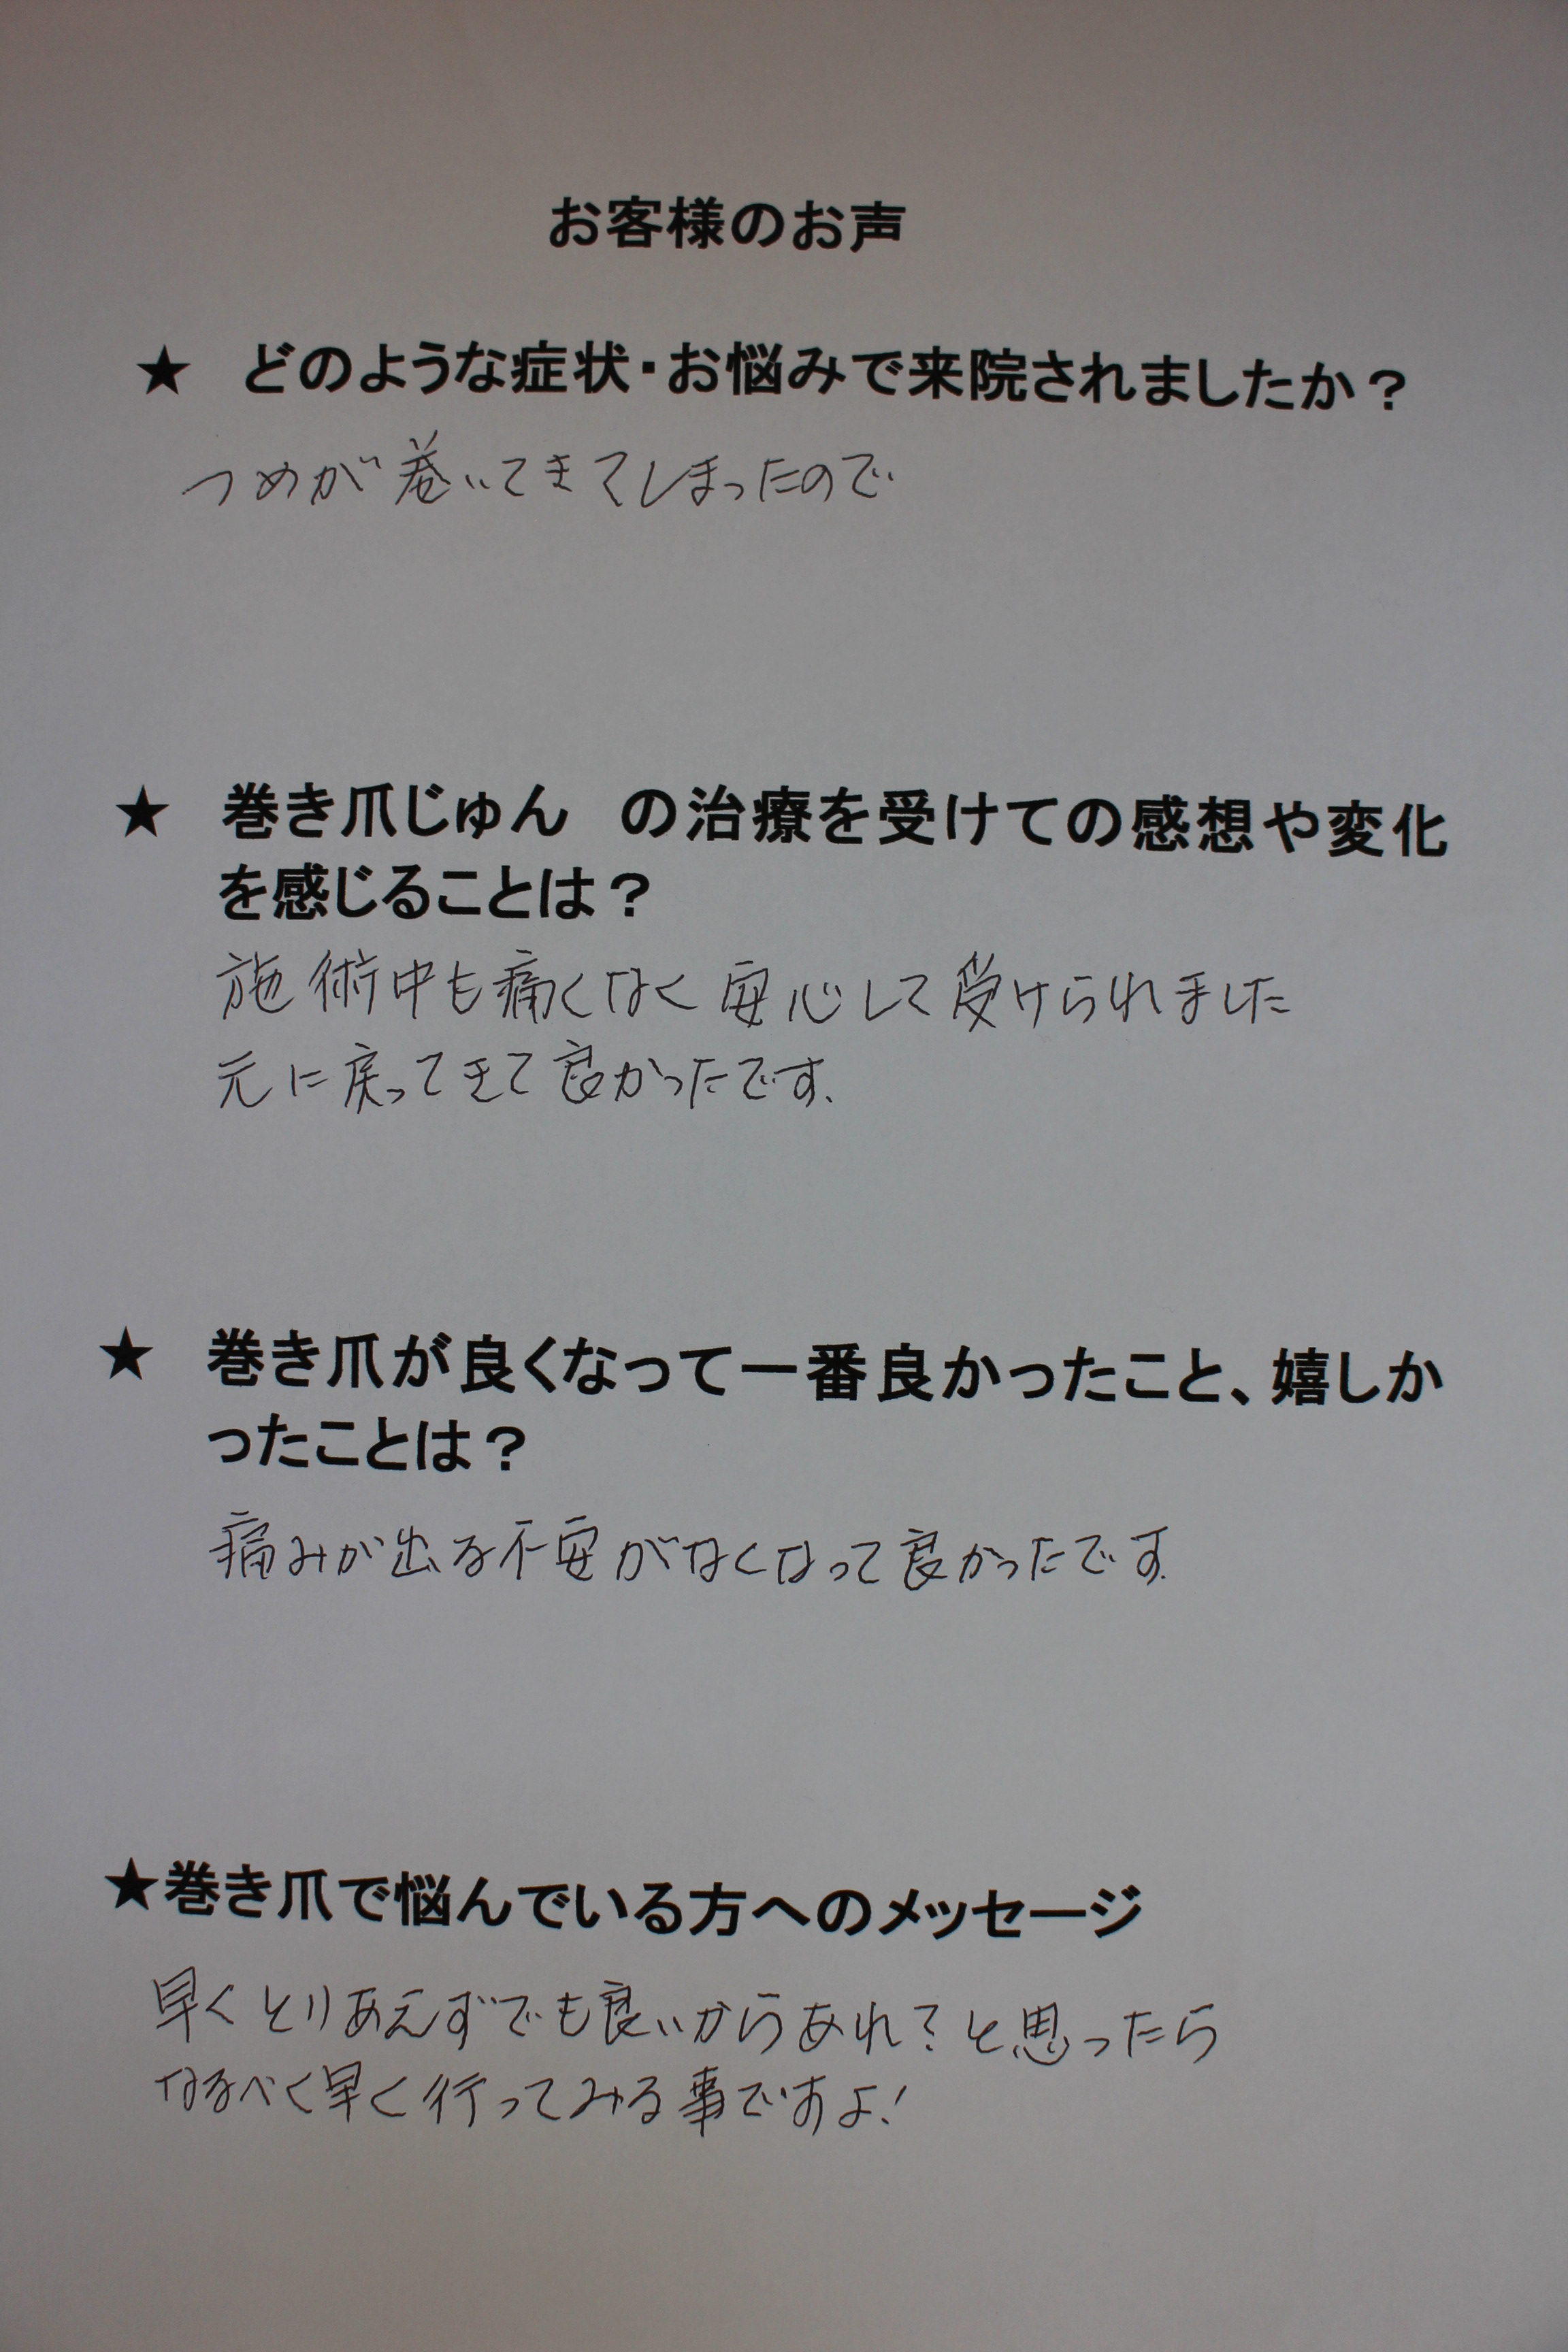 お客様のお声
★　どのような症状・お悩みで来院されましたか？
つめが巻いてきてしまったので
★　巻き爪じゅん　の治療を受けての感想や変化
を感じることは？
施術中も痛くなく安心して受けられました
元に戻ってきて良かったです.
★　巻き爪が良くなって一番良かったこと、嬉しか
ったことは？
痛みが出る不安がなくなって良かったです.
★巻き爪で悩んでいる方へのメッセージ
早くとりあえずでも良いからあれ？と思ったら
なるべく早く行ってみる事ですよ！